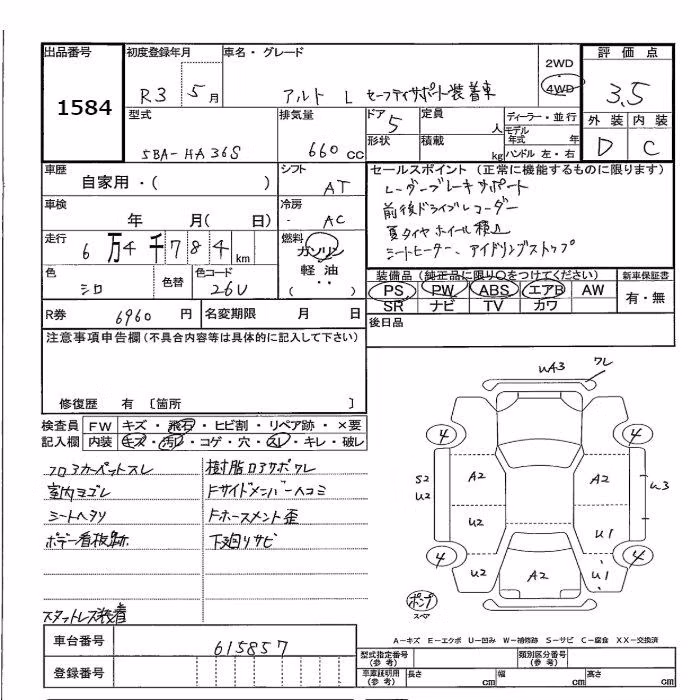 出品番号 初度登録年月 車名・グレード 評価点
1584 R3 5月 アルト L セーフティサポート装着車 2WD 4WD 3.5
型式 排気量 ドア 5 定員 人 ディーラー・並行 外装 内装
5BA-HA36S 660 cc 形状 積載 kg モデル年式 年 ハンドル 左・右 D C
車歴 シフト セールスポイント (正常に機能するものに限ります)
自家用・( ) AT レーダーブレーキサポート
車検 冷房 前後ドライブレコーダー
年 月( 日) AC 夏タイヤホイール積込
走行 燃料 シートヒーター、アイドリングストップ
6万4千784km ガソリン
軽油
( ・・ )
色 色替 色コード 装備品 (純正品に限り○をつけてください) 新車保証書
シロ 26U PS PW ABS エアB AW 有・無
SR ナビ TV カワ
R券 6960 円 名変期限 月 日 後日品
注意事項申告欄 (不具合内容等は具体的に記入して下さい)
修復歴 有 〔箇所 〕
検査員 FW キズ・飛石・ヒビ割・リペア跡・×要
記入欄 内装 キズ・汚れ・コゲ・穴・スレ・キレ・破レ
フロアカーペットスレ 樹脂ロアサポワレ
室内ヨゴレ Fサイドメンバーヘコミ
シートヘタリ Fホースメント歪
ボデー看板跡 下廻りサビ
スタットレス装着
UA3 ワレ
4 4
S2 A2 A2
U2 U3
U2 U1
4 4
U2 A2 U1
ポンプ
スペア
A-キズ E-エクボ U-凹み W-補修跡 S-サビ C-腐食 XX-交換済
車台番号 615857 型式指定番号(参考) 類別区分番号(参考)
登録番号 車庫証明用(参考) 長さ cm 幅 cm 高さ cm